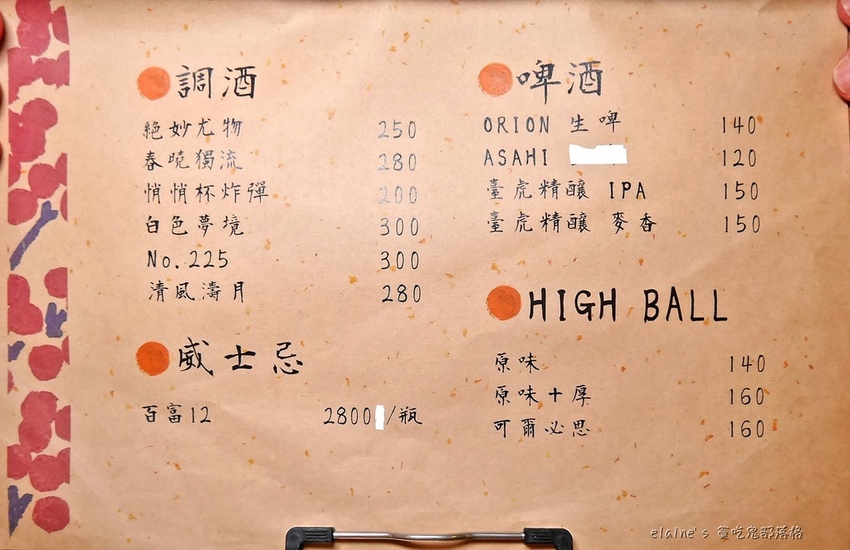 調酒
絕妙尤物 250
春曉獨流 280
悄悄杯炸彈 200
白色夢境 300
No.225 300
清風濤月 280
威士忌
百富12 2800/瓶
啤酒
ORION 生啤 140
ASAHI 120
臺虎精釀 IPA 150
臺虎精釀 麥香 150
HIGH BALL
原味 140
原味+厚 160
可爾必思 160
elaine's 貪吃鬼部落格